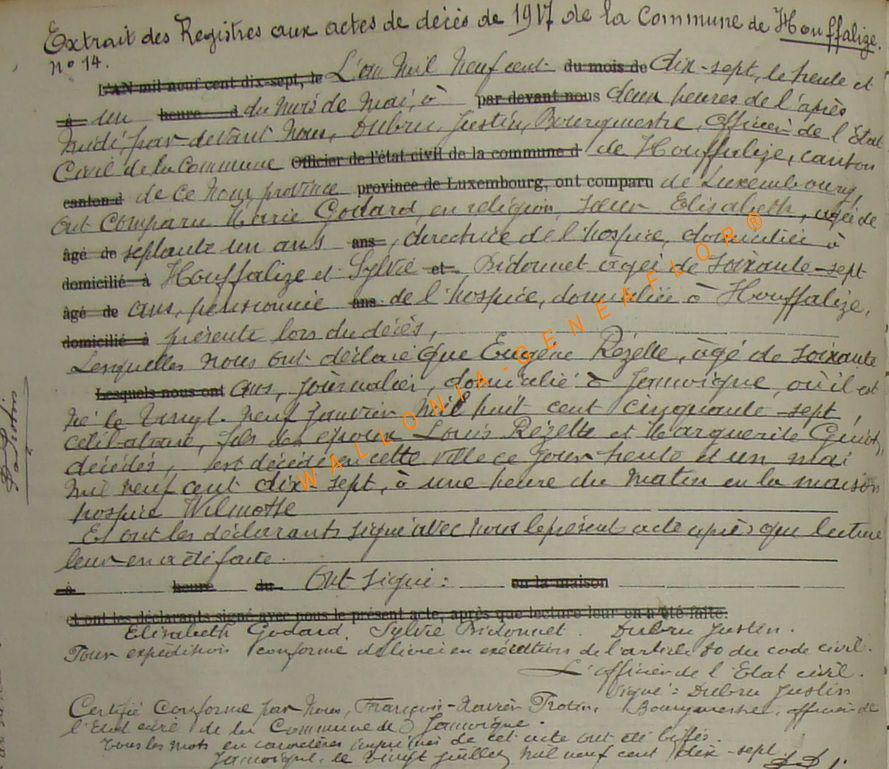 Extrait des Registres aux actes de décès de 1917 de la Commune de Houffalize.
n° 14.
L'AN mil neuf cent dix-sept, le L'an Mil Neuf cent du mois de dix-sept, le trente et
à un heure d du mois de Mai, à par devant nous deux heures de l'après
Midi, par devant Nous, Dubru Justin, Bourgmestre, Officier de l'Etat
Civil de la Commune Officier de l'état civil de la commune d de Houffalize, canton
canton d de ce Nom, province province de Luxembourg, ont comparu de Luxembourg,
Ont Comparu Marie Godard, en religion, Sœur Elisabeth, agée de
âgé de septante un ans ans, directrice de l'hospice, domiciliée à
domicilié à Houffalize et Sylvie et Bidonnet agée de Soixante-sept
âgé de ans, pensionnée ans de l'hospice, domiciliée à Houffalize,
domicilié à présente lors du décès,
Lesquelles Nous Ont déclaré que Eugène Rézette, âgé de soixante
Lesquels nous ont ans, Journalier, domicilié à Jamoigne, où il est
Né le Vingt-Neuf Janvier Mil huit cent cinquante-sept
célibataire, fils des époux Louis Rézette et Marguerite
décédés, est décédé en cette ville ce jour trente et un mai
Mil Neuf cent dix-sept, à une heure du Matin en la maison
hospice Wilmotte
Et ont les déclarants signé avec Nous le présent acte après que lecture
leur en a été faite.
à heure du Ont signé: en la maison
et ont les déclarants signé avec nous le présent acte, après que lecture leur en a été faite.
Elisabeth Godard, Sylvie Bidonnet. Dubru Justin.
Pour expédition conforme délivrée en exécution de l'article 80 du code civil.
L'officier de l'Etat civil.
signé: Dubru Justin
Certifié Conforme par Nous, François-Xavier Bourgmestre, officier de
l'Etat civil de la Commune de Jamoigne.
Tous les mots en caractères imprimés de cet acte ont été biffés.
Jamoigne, le vingt Juillet Mil neuf cent dix-sept.
WALLONIA-GENEAFLOR®